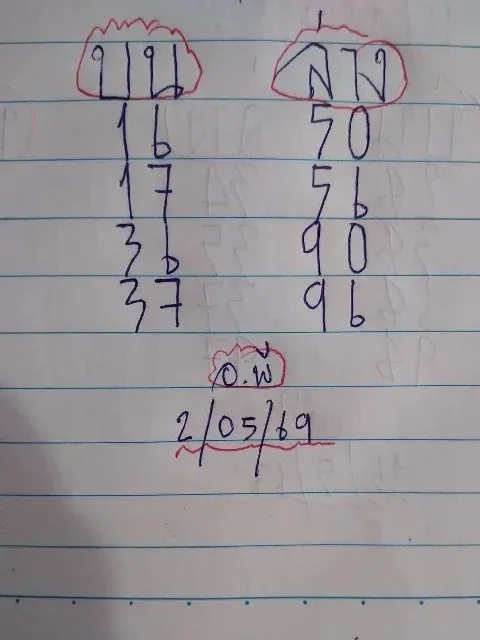 บน ล่าง
16 50
17 56
36 90
37 96
อ.พี
2/05/69